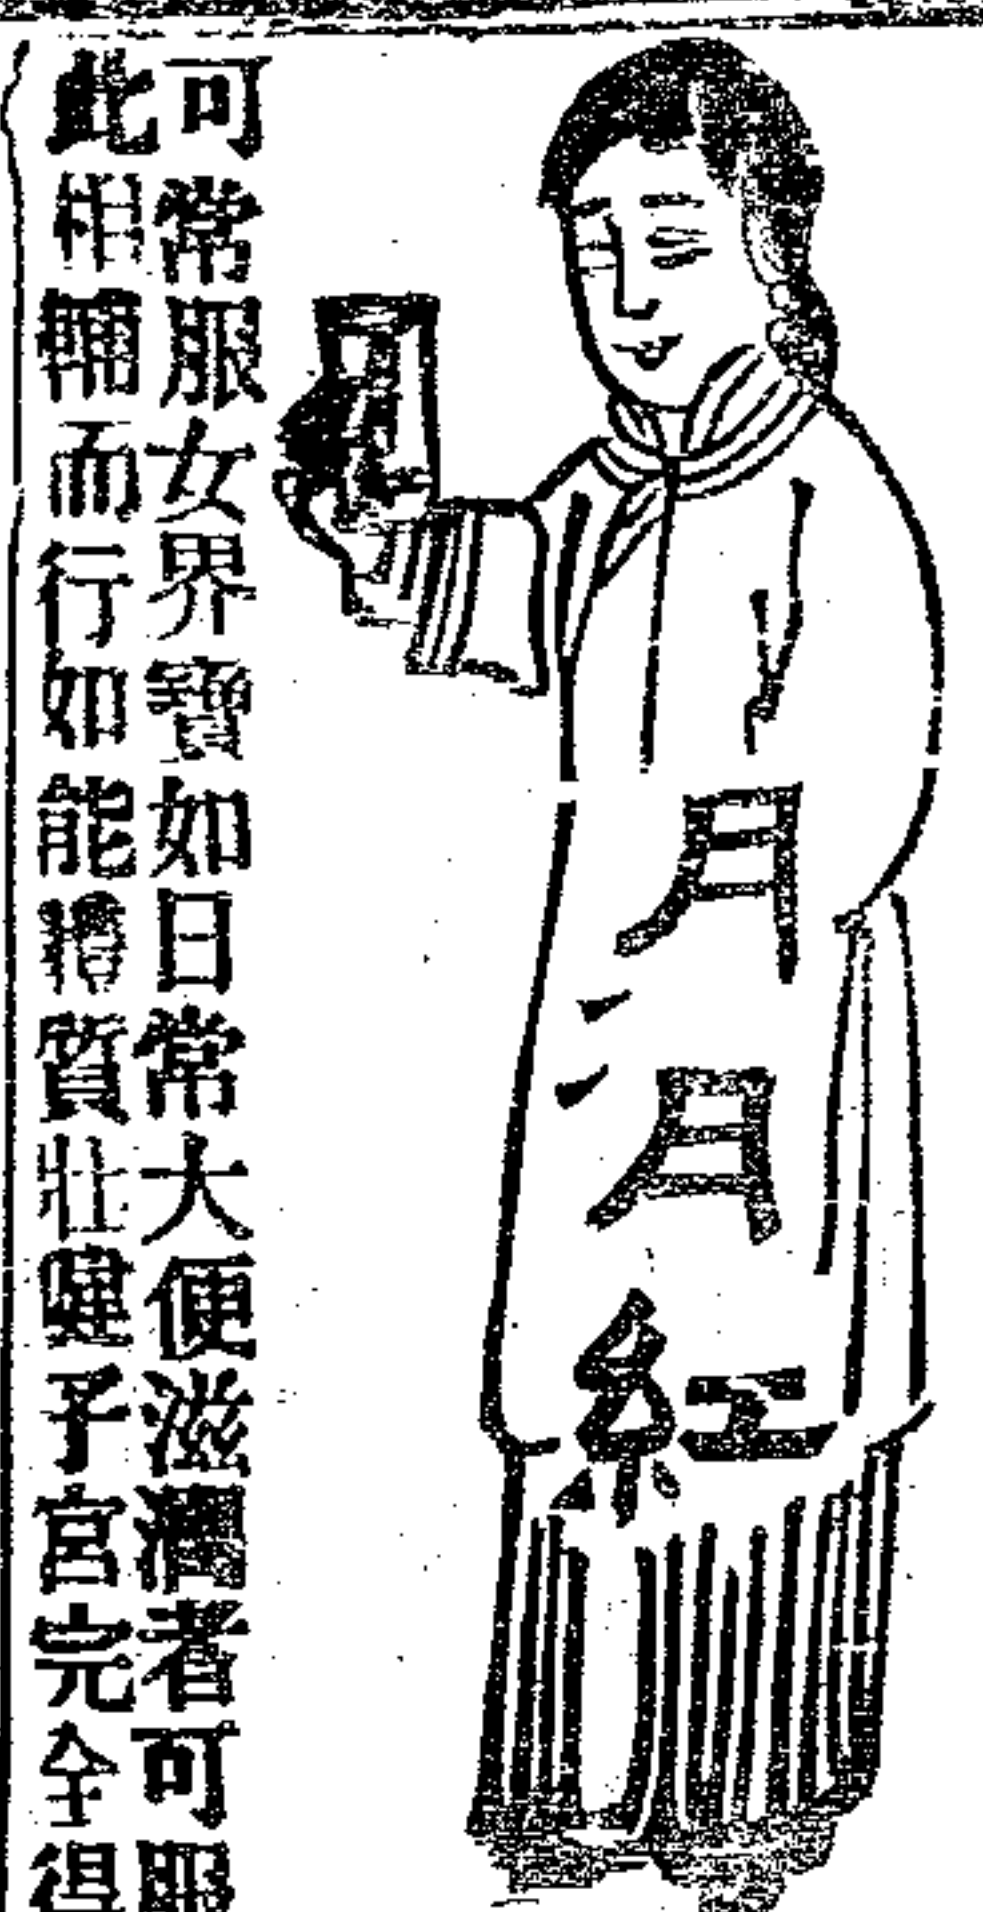 月月紅
可常服女界寶如日常大便滋潤者可服
此相輔而行如能體質壯健子宮完全得